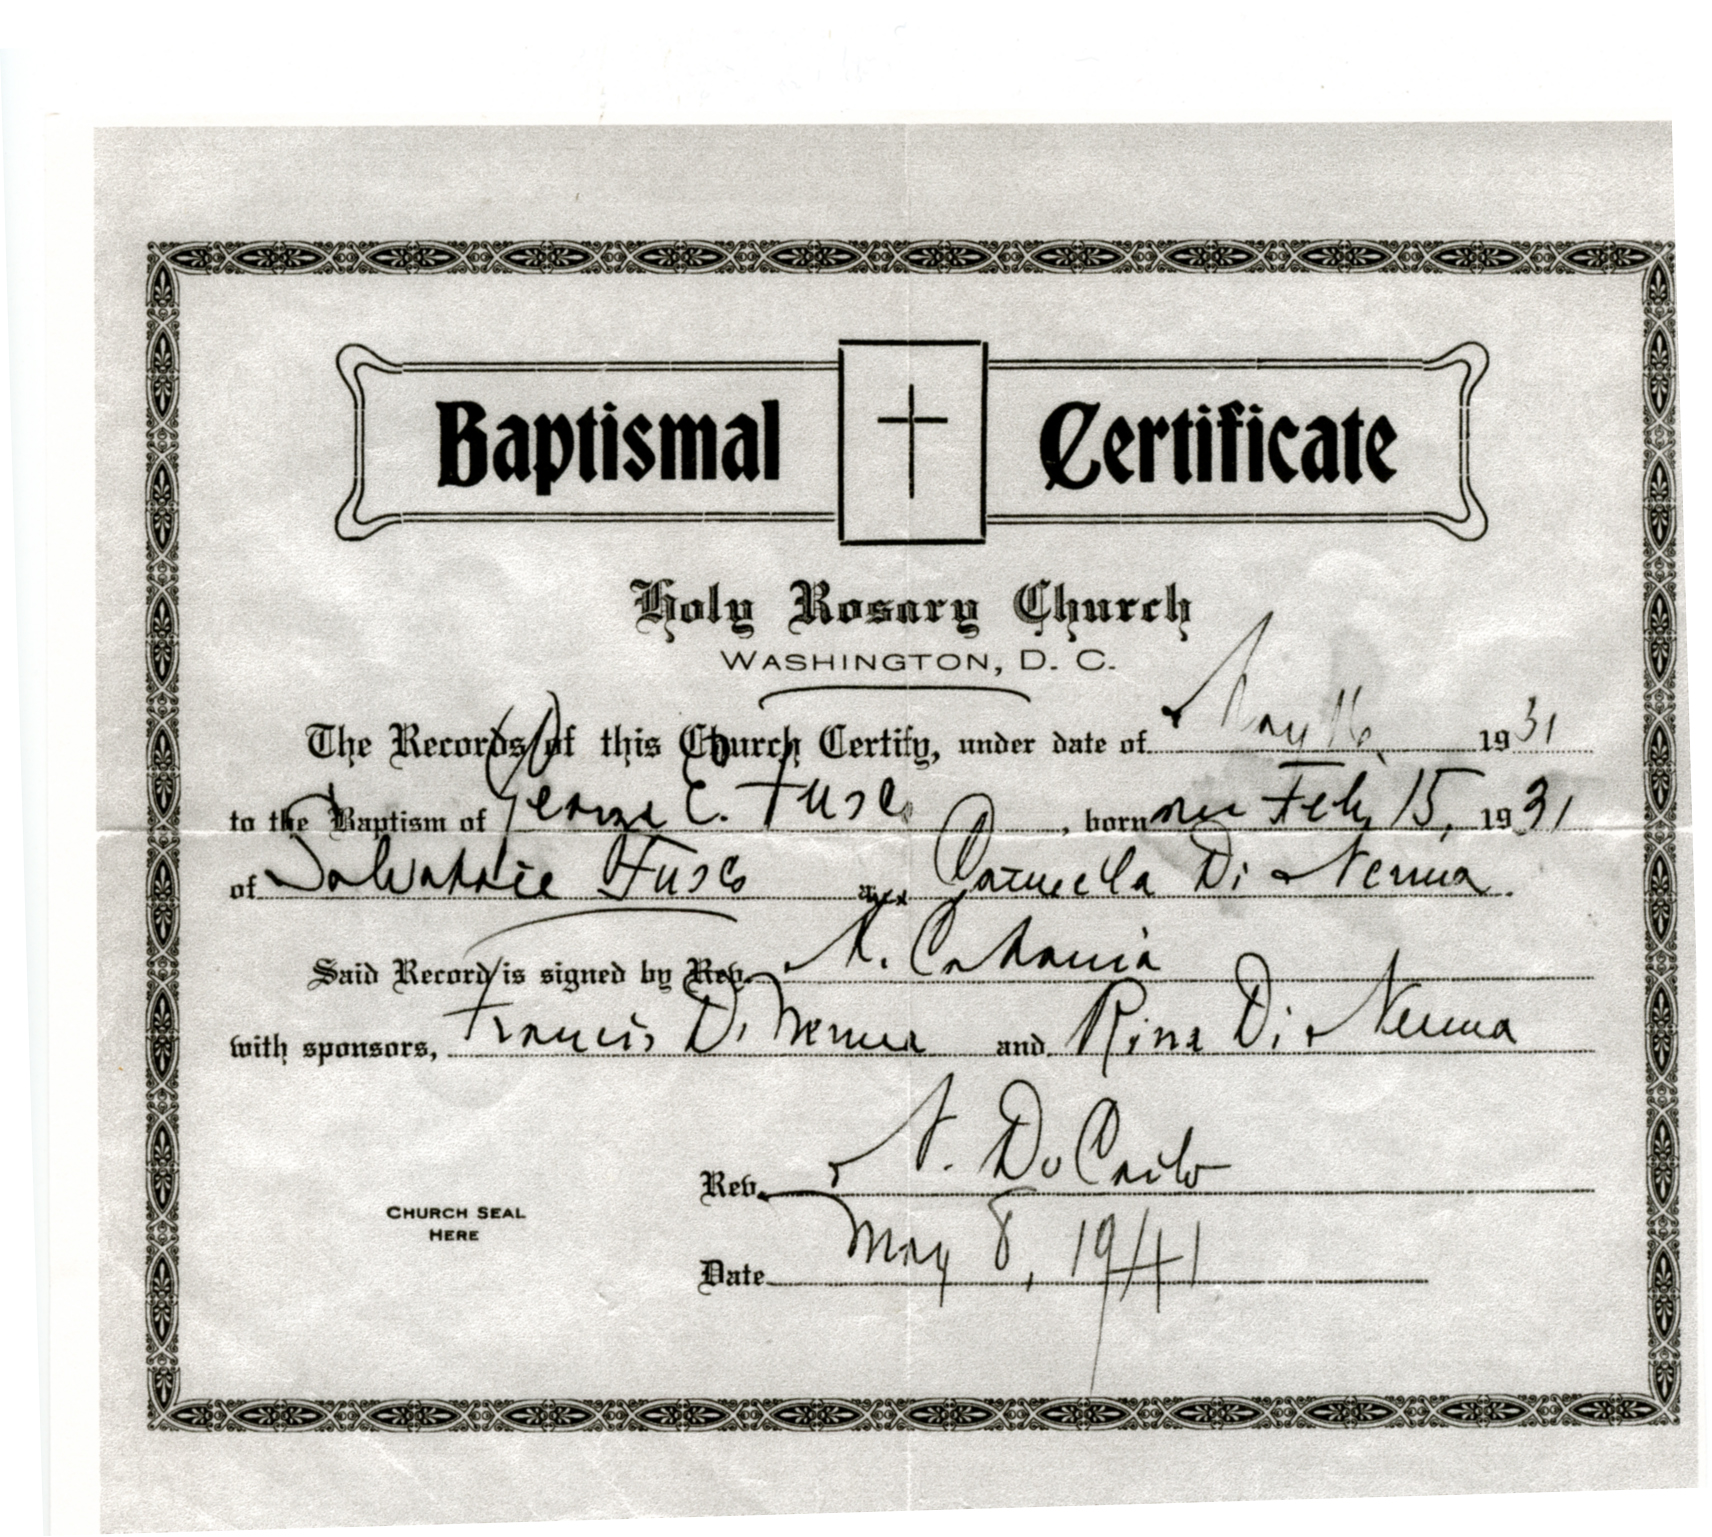 Baptismal Certificate
Holy Rosary Church
WASHINGTON, D. C.
The Records of this Church Certify, under date of May 16, 1931
to the Baptism of George C. Fusco, born on Feb. 15, 1931
of Salvatore Fusco and Carmela Di Nenna.
Said Record is signed by Rev. N. Catania
with sponsors, Francis Di Nenna and Rina Di Nenna
Rev. N. De Carlo
CHURCH SEAL
HERE
Date May 8, 1941